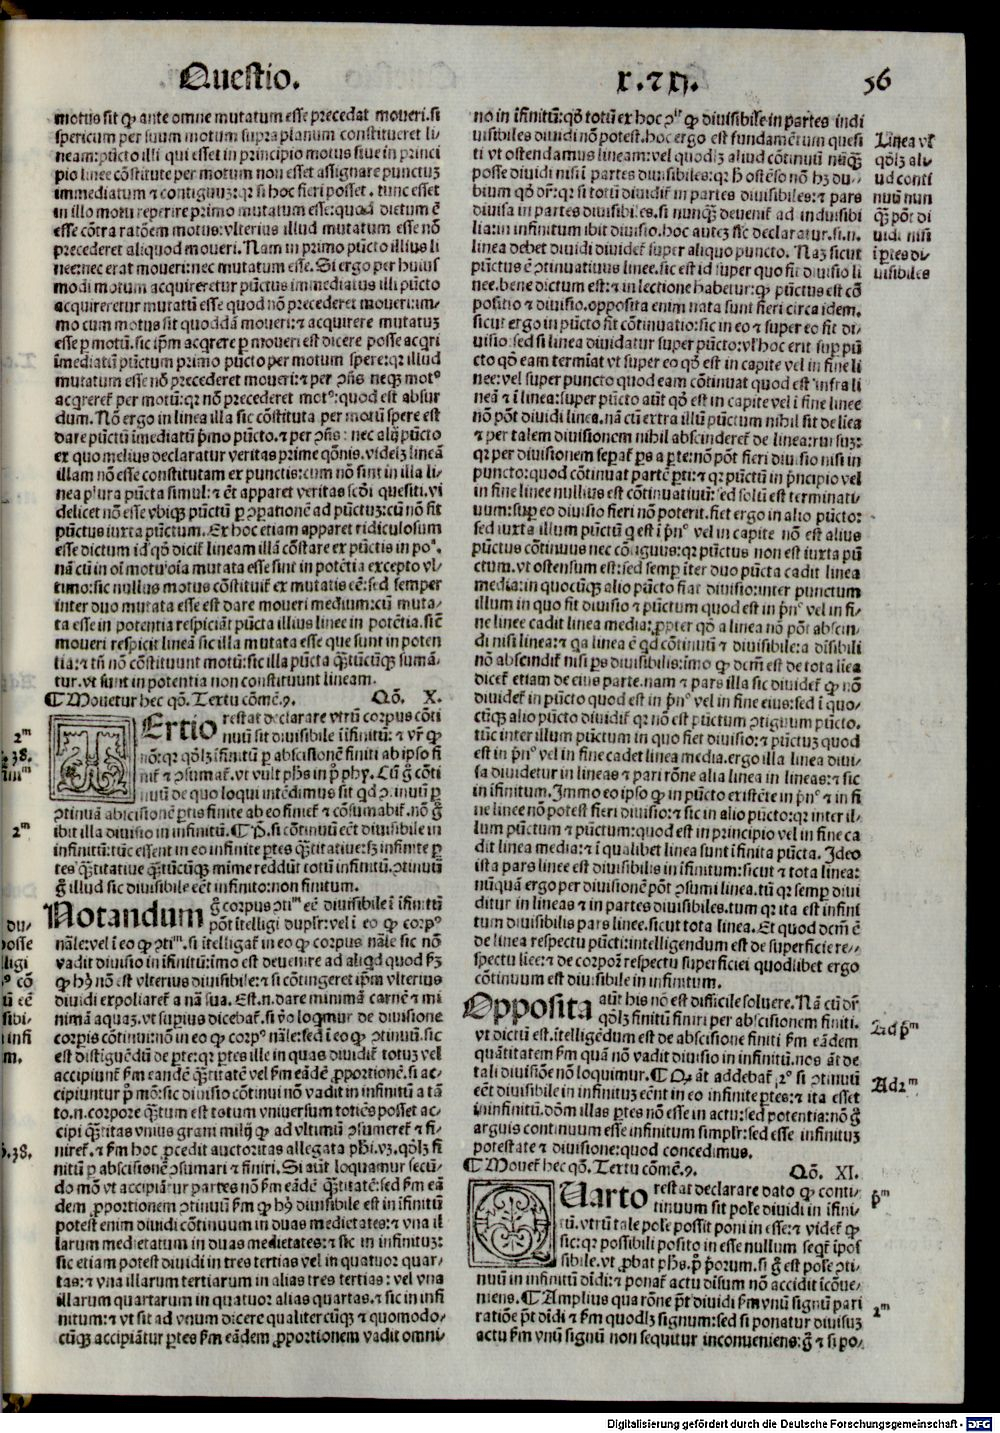 Questio.
X. ⁊ XI.
56
motus sit ꝙ ante omne mutatum esse precedat moueri. si
spericum per suum motum supra planum constitueret li⸗
neam: pūcto illi qui esset in principio motus siue in princi
pio linee cōstitute per motum non esset assignare punctuꝫ
immediatum ⁊ contiguuꝫ: qꝛ si hoc fieri posset. tunc esset
in illo motu reperire primo mutatum esse: quod dictum ē
esse cōtra ratōem motus: vlterius illud mutatum esse nō
precederet aliquod moueri. Nam in primo pūcto illius li
nee: nec erat moueri: nec mutatum esse. Si ergo per huius
modi motum acquireretur pūctus immediatus illi pūcto
acquireretur mutatū esse quod nō precederet moueri: im⸗
mo cum motus sit quoddā moueri: ⁊ acquirere mutatuꝫ
esse ꝑ motū. sic ip̄m acq̄rere ꝑ moueri est dicere posse acq̄ri
īmediatū pūctum primo pūcto per motum spere: qꝛ illud
mutatum esse nō precederet moueri: ⁊ per ꝯn̄s neqꝫ motꝰ
acq̄reret᷑ per motū: qꝛ nō precederet motꝰ: quod est absur
dum. Nō ergo in linea illa sic cōstituta per motū spere est
dare pūctū īmediatū p̄mo pūcto. ⁊ per ꝯn̄s: nec alij pūcto
ex quo melius declaratur veritas prime q̄onis. videlꝫ lineā
illam nō esse constitutam ex punctis: cum nō sint in illa li⸗
nea plura pūcta simul: ⁊ ēt apparet veritas scd̄i quesiti. vi
delicet nō esse vbiqꝫ pūctū ꝑ ꝯꝑationē ad pūctuꝫ: cū nō sit
pūctus iuxta pūctum. Ex hoc etiam apparet ridiculosum
esse dictum id qd̄ dicit᷑ lineam illā cōstare ex pūctis in poᵃ.
nā cū in oī motu oīa mutata esse sint in potētia excepto vl⸗
timo: sic nullus motus cōstituit᷑ ex mutatis eē: sed semper
inter duo mutata esse est dare moueri medium: cū muta⸗
ta esse in potentia respiciāt pūcta illius linee in potētia. sicut
moueri respicit lineā sic illa mutata esse que sunt in poten
tia: ⁊ tn̄ nō cōstituunt motū: sic illa pūcta q̄ntūcūqꝫ sumā⸗
tur. vt sunt in potentia non constituunt lineam.
¶ Mouetur hec qō. Textu cōmē. 9. Qō. X.
Ertio restat declarare vtrū corpus cōti
nuū sit diuisibile ī īfinitū: ⁊ vr̄ ꝙ
nō: qꝛ qd̄lꝫ īfinitū ꝑ abscisionē finiti ab ipso fi
nit᷑ ⁊ ꝯsumat᷑. vt vult ph̄s in pº phy. Cū g̊ cōti
nuū de quo loqui intēdimus sit qd̄ ꝯtinuū ꝑ
ꝯtinuā abscisionē ꝑtis finite ab eo finiet᷑ ⁊ cōsumabit᷑. nō g̊
ibit illa diuisio in infinitū. ¶ P̄. si cōtinuū eēt diuisibile in
infinitū: tūc essent in eo infinite ꝑtes q̄ntitatiue: sꝫ infinite ꝑ
tes q̄ntitatiue q̄ntūcūqꝫ mime reddūt totū infinitū. ꝯtinuū
g̊ illud sic diuisibile eēt infinito: non finitum.
Notandum g̊ corpus ꝯtiᵐ eē diuisibile ī īfinitū
pōt ītelligi duplr̄: vel ī eo ꝙ corpꝰ
nāle: vel ī eo ꝙ ꝯtiᵐ. si ītelligat᷑ in eo ꝙ corpus nāle sic nō
vadit diuisio in īfinitū: īmo est deuenire ad aliqd̄ quod ẜꝫ
ꝙ hꝰ nō est vlterius diuisibile: ⁊ si cōtingeret ip̄m vlterius
diuidi expoliaret᷑ a nā sua. Est. n. dare minimā carnē ⁊ mi
nimā aquaꝫ. vt supius dicebat᷑. si v̊o loqmur de diuisione
corpis cōtinui: nō in eo ꝙ corpꝰ nāle: sed ī eo ꝙ ꝯtinuū. sic
est distīguēdū de ꝑte: qꝛ ꝑtes ille in quas diuidit᷑ totuꝫ vel
accipiunt᷑ ẜm eandē q̄ntitatē vel ẜm eādē ꝓportionē. si ac⸗
cipiuntur pº mō: sic diuisio cōtinui nō vadit in infinitū a tā
to. n. corpore q̄ntum est totum vniuersum totiēs posset ac⸗
cipi q̄ntitas vnius grani milij ꝙ ad vltimū ꝯsumeret᷑ ⁊ fi⸗
niret᷑. ⁊ ẜm hoc ꝓcedit auctoritas allegata ph̄i. vꝫ. qd̄lꝫ fi
nitū ꝑ abscisionē ꝯsumari ⁊ finiri. Si aūt loquamur secū⸗
do mō vt accipiātur partes nō ẜm eādē q̄ntitatē: sed ẜm eā
dem ꝓportionem ꝯtinuū ẜm ꝙ hꝰ diuisibile est in īfinitū
potest enim diuidi cōtinuum in duas medietates: ⁊ vna il
larum medietatum in duas medietates: ⁊ sic in infinituꝫ:
sic etiam potest diuidi in tres tertias vel in quatuor quar⸗
tas: ⁊ vna illarum tertiarum in alias tres tertias: vel vna
illarum quartarum in quatuor alias quartas. ⁊ sic in infi
nitum: ⁊ vt sit ad vnum dicere qualitercūqꝫ ⁊ quomodo⸗
cūqꝫ accipiātur ꝑtes ẜm eādem ꝓportionem vadit omni⸗
2ᵐ
2ᵐ
no in īfinitū: qd̄ totū ex hoc ꝯtᵗ ꝙ diuisibile in partes indi
uisibiles diuidi nō potest. hoc ergo est fundamētum quesi
ti vt ostendamus lineam: vel quodlꝫ aliud cōtinuū nūqꝫ
posse diuidi nisi ī partes diuisibiles: qꝛ h̊ ostēso nō hꝫ du⸗
bium qd̄ dr̄: qꝛ si totū diuidit᷑ in partes diuisibiles: ⁊ pars
diuisa in partes diuisibiles. si nunqꝫ deuenit᷑ ad indiuisibi
lia: in infinitum ibit diuisio. hoc autez sic declaratur. si. n.
linea debet diuidi diuidet᷑ super aliquo puncto. Naꝫ sicut
pūctus ē ꝯtinuatiuus linee. sic est id super quo fit diuisio li
nee. bene dictum est: ⁊ in lectione habetur: ꝙ pūctus est cō
positio ⁊ diuisio. opposita enim nata sunt fieri circa idem.
sicut ergo in pūcto fit cōtinuatio: sic in eo ⁊ super eo fit di⸗
uisio: sed si linea diuidatur super pūcto: vl̄ hoc erit suꝑ pū
cto qd̄ eam termīat vt super eo qd̄ est in capite vel in fine li
nee: vel super puncto quod eam cōtinuat quod est infra li
neā ⁊ ī linea: super pūcto aūt qd̄ est in capite vel ī fine linee
nō pōt diuidi linea. nā cū extra illū pūctum nihil sit de līea
⁊ per talem diuisionem nihil abscinderet᷑ de linea: rursuꝫ:
qꝛ per diuisionem sepat᷑ ps a ꝑte: nō pōt fieri diuisio nisi in
puncto: quod cōtinuat partē ꝑti: ⁊ qꝛ pūctū in p̄ncipio vel
in fine linee nullius est cōtinuatiuū: sed solū est terminati⸗
uum: suꝑ eo diuisio fieri nō poterit. fiet ergo in alio pūcto:
sed iuxta illum pūctū q est ī p̄nº vel in capite nō est alius
pūctus cōtinuus nec cōtiguus: qꝛ pūctus non est iuxta pū
ctum. vt ostensum est: sed semꝑ īter duo pūcta cadit linea
media: in quocūqꝫ alio pūcto fiat diuisio: inter punctum
illum in quo fit diuisio ⁊ pūctum quod est in p̄nº vel in fi⸗
ne linee cadit linea media: ꝓpter qd̄ a linea nō pōt abscin⸗
di nisi linea: ⁊ qa linea ē qd̄ cōtinuū ⁊ diuisibile: a diisibili
nō abscindit᷑ nisi ꝑs diuisibilis: īmo ꝙ dc̄m est de tota līea
dicet᷑ etiam de eius parte. nam ⁊ pars illa sic diuidet᷑ ꝙ nō
diuidet᷑ in pūcto quod est in p̄nº vel in fine eius: sed ī quo⸗
cūqꝫ alio pūcto diuidit᷑ qꝛ nō est pūctum ꝯtiguum pūcto.
tūc inter illum pūctum in quo fiet diuisio: ⁊ pūctuꝫ quod
est in p̄nº vel in fine cadet linea media. ergo illa linea diui⸗
sa diuidetur in lineas ⁊ pari rōne alia linea in lineas: ⁊ sic
in īfinitum. Immo eo ipso ꝙ in pūcto existēte in p̄nº ⁊ in fi
ne linee nō potest fieri diuisio: ⁊ sic in alio pūcto: qꝛ inter il⸗
lum pūctum ⁊ pūctum: quod est in principio vel in fine ca
dit linea media: ⁊ ī qualibet linea sunt īfinita pūcta. Ideo
ista pars linee est diuisibilis in īfinitum: sicut ⁊ tota linea:
nūquā ergo per diuisionē pōt ꝯsumi linea. tū qꝛ semꝑ diui
ditur in lineas ⁊ in partes diuisibiles. tum qꝛ ita est infini
tum diuisibilis pars linee. sicut tota linea. Et quod dc̄m ē
de linea respectu pūcti: intelligendum est de superficie re⸗
spectu līee: ⁊ de corpore respectu superficiei quodlibet ergo
cōtinuum est diuisibile in infinitum.
Opposita aūt his nō est difficile soluere. Nā cū dr̄.
qd̄lꝫ finitū finiri per abscisionem finiti.
vt dictū est. ītelligēdum est de abscisione finiti ẜm eādem
quātitatem ẜm quā nō vadit diuisio in infinitū. nos āt de
tali diuisiōe nō loquimur. ¶ Qꝫ āt addebat᷑ 2º si ꝯtinuū
eēt diuisibile in infinituꝫ eēnt in eo infinite ꝑtes: ⁊ ita esset
ininfinitū. dōm illas ꝑtes nō esse in actu: sed potentia: nō g̊
arguis continuum esse infinitum simplr̄: sed esse infinituꝫ
potestate ⁊ diuisione: quod concedimus.
¶ Mouet᷑ hec qō. Textu cōmē. 9. Qō. XI.
Uarto restat declarare dato ꝙ conti⸗
tinuum sit pole diuidi in īfini⸗
tū. vtrū tale pole possit poni in esse: ⁊ videt᷑ ꝙ
sic: qꝛ possibili posito in esse nullum seqt᷑ īpos
sibile. vt ꝓbat ph̄s. pº p̄orum. si g̊ est pole ꝯti⸗
nuū in infinitū dīdi: ⁊ ponat᷑ actu dīsum nō accidit īcōue⸗
niens. ¶ Amplius qua rōne pt̄ diuidi ẜm vnū signū pari
ratiōe pt̄ dīdi ⁊ ẜm quodlꝫ signum: sed si ponatur diuisuꝫ
actu ẜm vnū signū non sequitur inconueniens: g̊ ⁊ si po⸗
Linea vl̄
qd̄lꝫ ali⸗
ud conti
nuū nun
qꝫ pōt di
uidi nisi
ī ꝑtes di⸗
uisibiles
Ad pᵐ
Ad 2ᵐ
pᵐ
2ᵐ
Digitalisierung gefördert durch die Deutsche Forschungsgemeinschaft - DFG